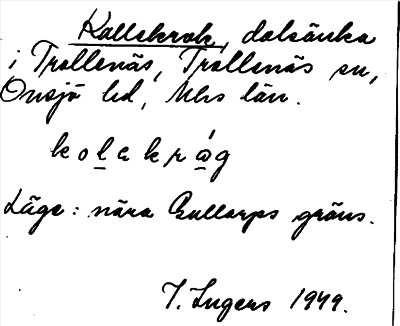 Kallekrok, dalsänka
i Trollenäs, Trollenäs sn,
Onsjö hd, Mhs län.
kolakråg
Läge: nära Gullarps gräns.
I. Ingers 1949.